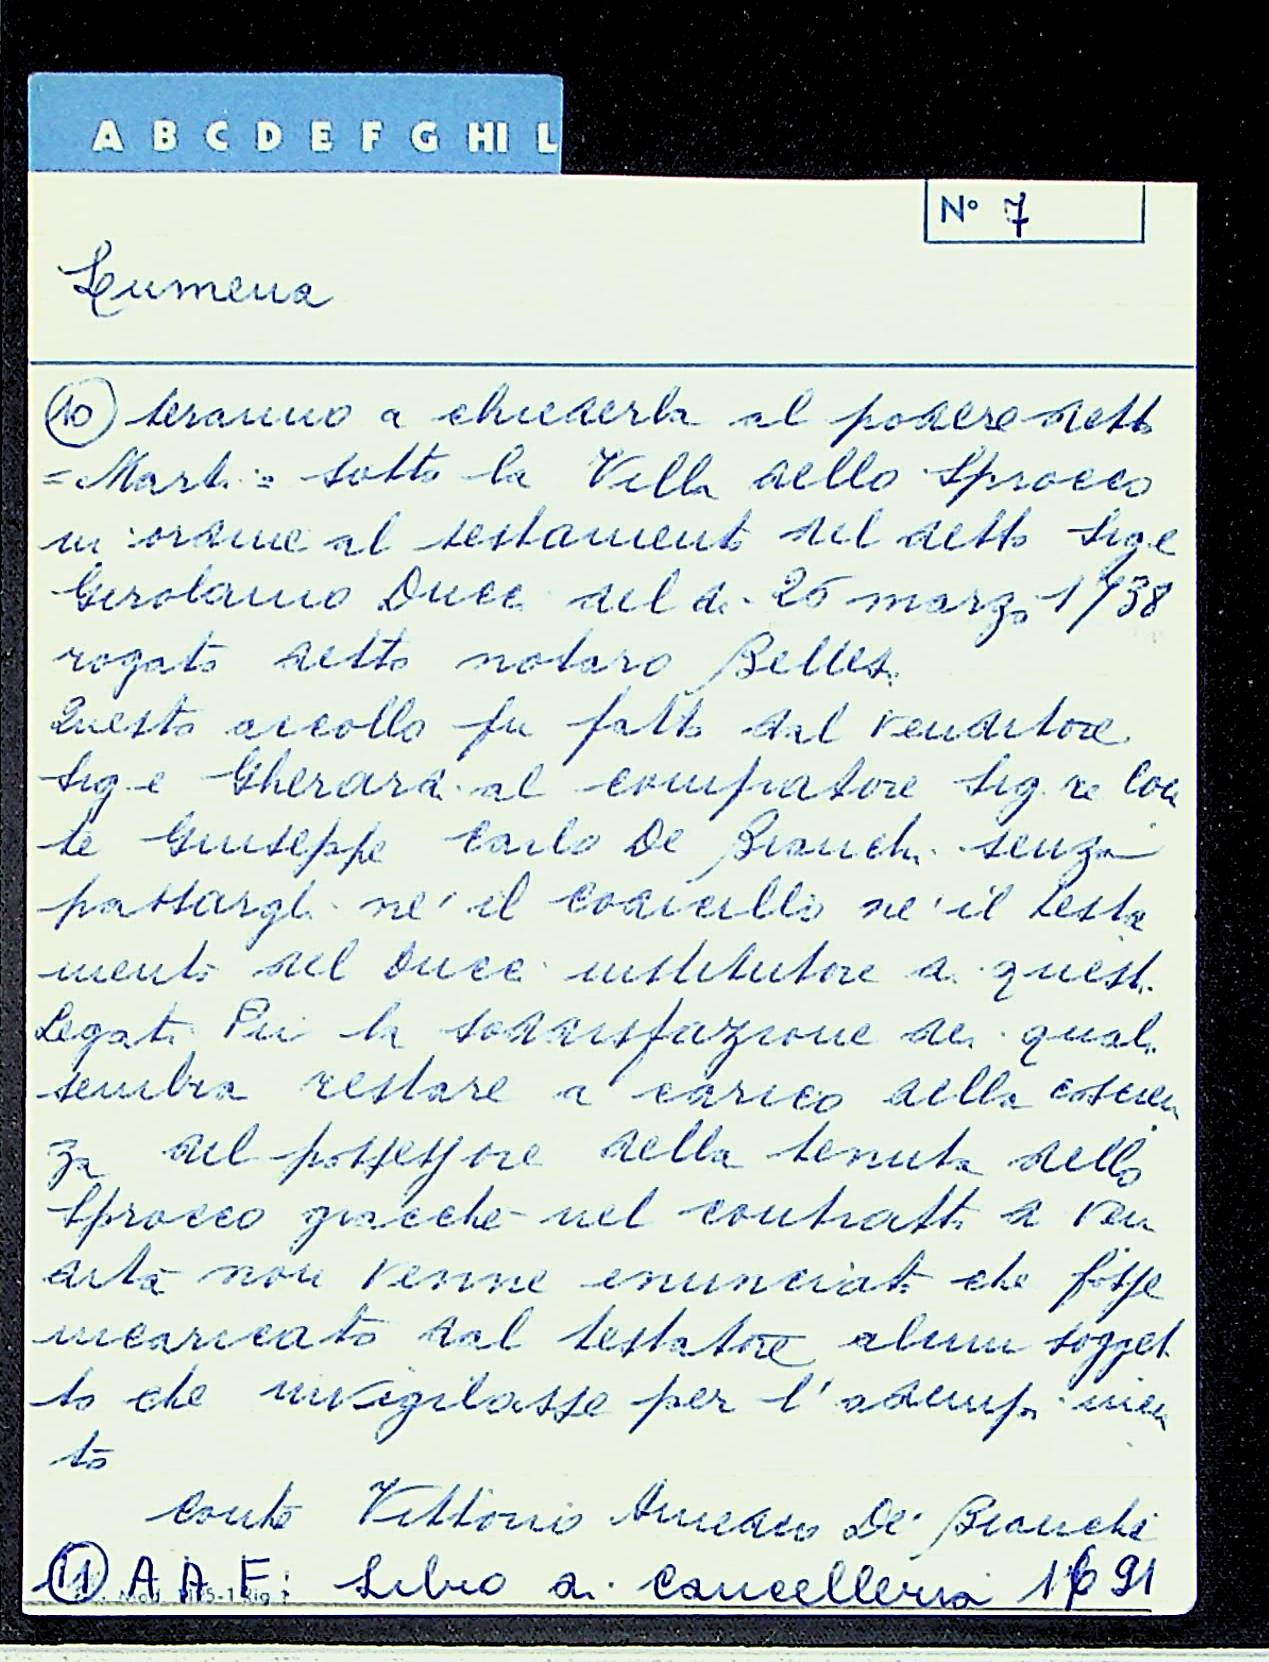 A B C D E F G HI L
N° 7
Lumena
10 teranno a chiederla al podere detto
= Marti = sotto la Villa dello Sprocco
in ordine al testamento del detto Sig.e
Gerolamo Ducci del di 26 marzo 1738
rogato detto notaro Belles.
Questo accollo fu fatto dal venditore
Sig.e Gherardi al compratore Sig.re Con
te Giuseppe Carlo De Bianchi senza
passargli ne' il codicillo ne' il testa
mento del Ducci institutore di questi
Legati Pii la soddisfazione dei quali
sembra restare a carico della coscien
za del possessore della tenuta dello
Sprocco giacchè nel contratto di ven
dita non venne enunciato che fosse
incaricato dal testatore alcun sogget
to che invigilasse per l'adempimen
to
conte Vittorio Amedeo De' Bianchi
11 A A F: Libro di Cancelleria 1691